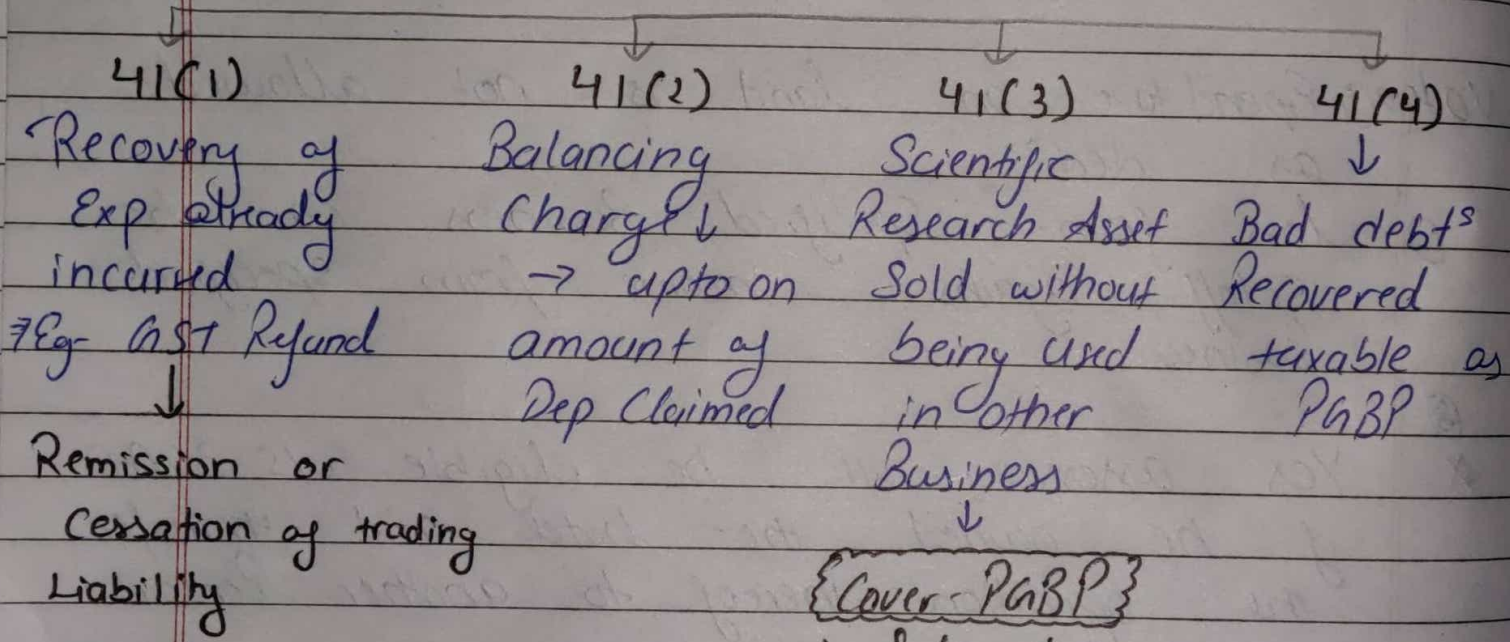 41(1)
Recovery of
Exp already
incurred
⇒ Eg- GST Refund
↓
Remission or
Cessation of trading
Liability
41(2)
Balancing
Charge ↓
→ upto on
amount of
Dep Claimed
41(3)
Scientific
Research Asset
Sold without
being used
in other
Business
↓
{Cover - PGBP}
41(4)
↓
Bad debts
Recovered
taxable as
PGBP